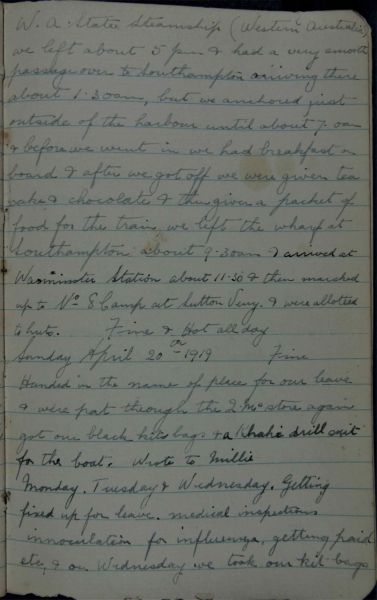 W. A. State Steamship (Western Australia)
we left about 5 pm & had a very smooth
passage over to Southampton arriving there
about 1.30am, but we anchored just
outside of the harbour until about 7.0am
& before we went in we had breakfast on
board & after we got off we were given tea
cake & chocolate & then given a packet of
food for the train, we left the wharf at
Southampton about 9.30am & arrived at
Warminster Station about 11.30 & then marched
up to No 8 Camp at Sutton Veny. & were allotted
to huts. Fine & Hot all day
Sunday April 20th 1919 Fine
Handed in the name of place for our leave
& were put through the Q Mc store again
got our black kit bags & a Khaki drill suit
for the boat. Wrote to Millie
Monday. Tuesday & Wednesday. Getting
fixed up for leave. medical inspections
innoculation for influenza, getting paid
etc, & on Wednesday we took our kit bags